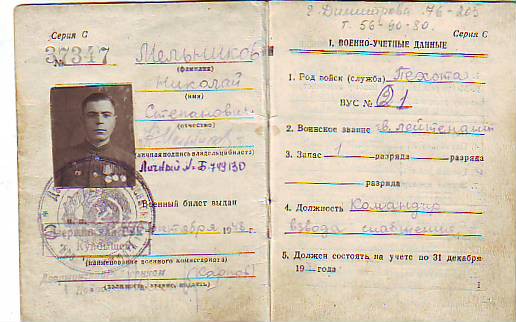 г. Димитрова 76-205
т. 56-90-80.
Серия С
№ 37347
Мельников
(фамилия)
Николай
(имя)
Степанович
(отчество)
(личная подпись владельца билета)
Личный № Б 749130
Военный билет выдан
г. Куйбышев
(наименование военного комиссариата)
(Карпов)
(должность, звание, подпись)
Серия С
I. ВОЕННО-УЧЕТНЫЕ ДАННЫЕ
1. Род войск (служба) Пехота
ВУС № 21
2. Воинское звание лейтенант
3. Запас 1 разряда разряда
разряда
4. Должность Командир
взвода снабжения
5. Должен состоять на учете по 31 декабря
19 года
1